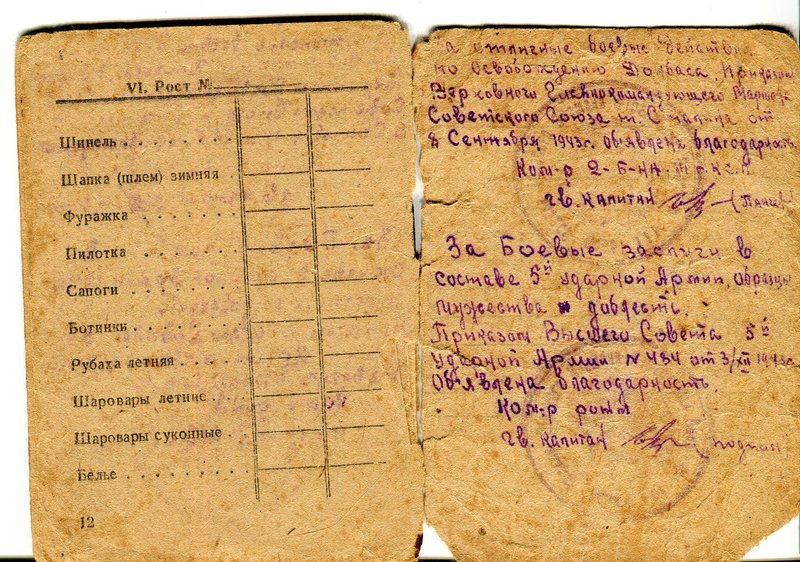 VI. Рост №
Шинель
Шапка (шлем) зимняя
Фуражка
Пилотка
Сапоги
Ботинки
Рубаха летняя
Шаровары летние
Шаровары суконные
Белье
12
За отличные боевые действия
по освобождению Донбаса, Приказом
Верховного Главнокомандующего Маршала
Советского Союза т. Сталина от
8 Сентября 1943г. об'явлена благодарность
Ком-р 2-б-на
гв. капитан
За Боевые заслуги в
составе 5й ударной Армии, образцы
мужества и доблесть.
Приказом Высшего Совета 5й
ударной Армии N 484 от 3/XII 1943г
Об'явлена благодарность.
Ком-р роты
гв. капитан (подпись)